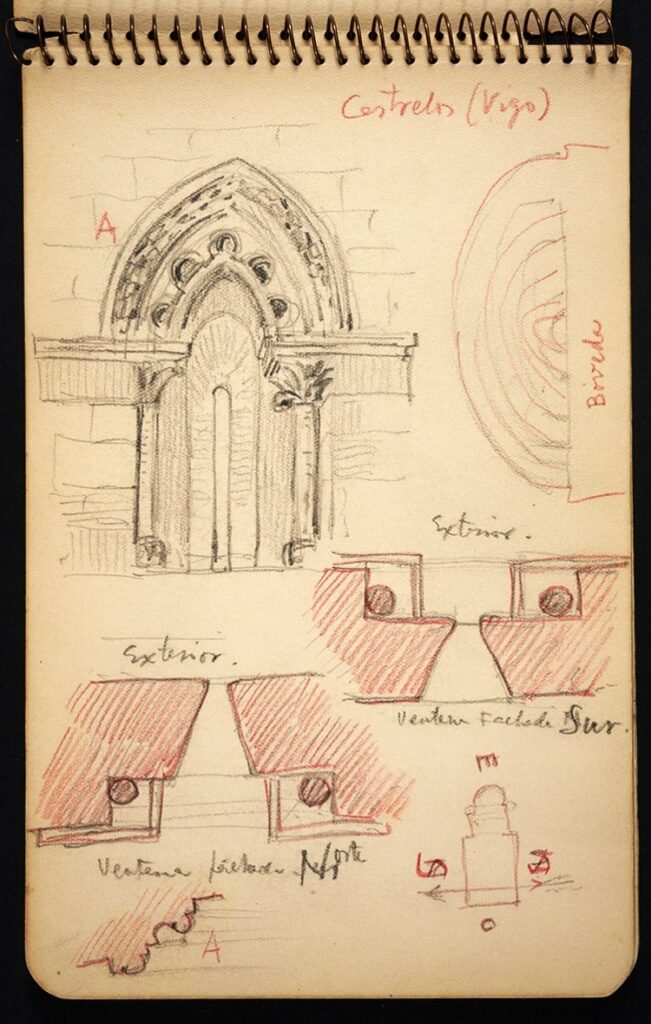 Castrelos (Vigo)
A
Bóveda
Exterior.
Ventana Fachada Sur.
Exterior.
Ventana fachada Norte
E
S
N
O
A